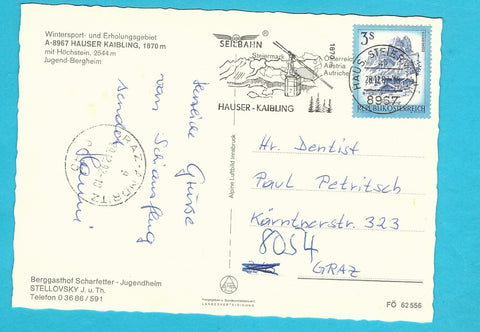 Wintersport- und Erholungsgebiet
A-8967 HAUSER KAIBLING, 1870 m
mit Höchstein, 2544 m
Jugend-Bergheim
Herzliche Grüsse
vom Schiausflug
sendet
Hanni
GRAZ-ANDRITZ
Berggasthof Scharfetter - Jugendheim
STELLOVSKY J. u. Th.
Telefon 0 36 86 / 591
Alpine Luftbild Innsbruck
SEILBAHN
Steiermark
1870
Österreich
Austria
Autriche
HAUSER-KAIBLING
3 S
HAUS, STEIERM
8967
REPUBLIK ÖSTERREICH
Hr. Dentist
Paul Petritsch
Kärntnerstr. 323
8054
GRAZ
FÖ 62556